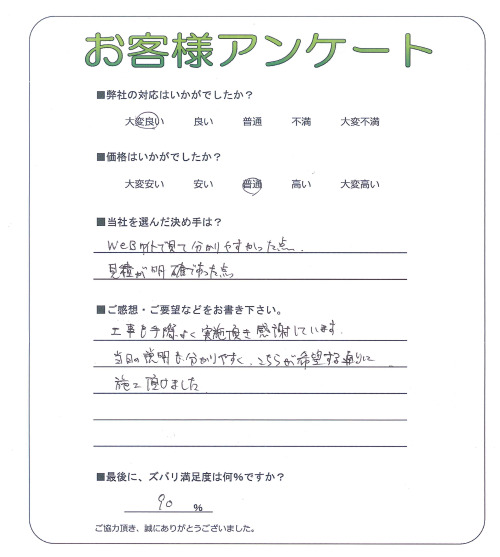 お客様アンケート
■弊社の対応はいかがでしたか？
大変良い 良い 普通 不満 大変不満
■価格はいかがでしたか？
大変安い 安い 普通 高い 大変高い
■当社を選んだ決め手は？
WEBサイトで見て分かりやすかった点.
見積が明確であった点
■ご感想・ご要望などをお書き下さい。
工事も手際よく実施頂き感謝しています.
当日の説明も分かりやすく、こちらが希望する通りに
施工頂けました
■最後に、ズバリ満足度は何％ですか？
90 ％
ご協力頂き、誠にありがとうございました。